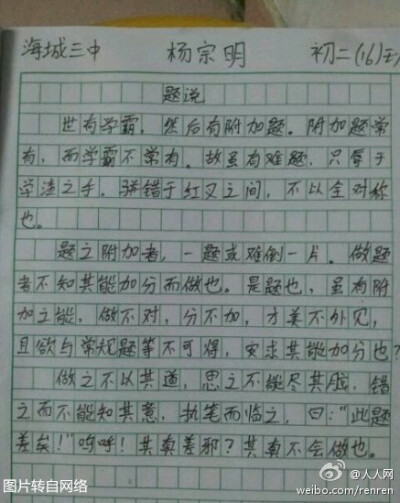 海城三中 杨宗明 初二(16)班
题说
世有学霸，然后有附加题。附加题常
有，而学霸不常有。故虽有难题，只辱于
学渣之手，骈错于红叉之间，不以全对称
也。
题之附加者，一题或难倒一片。做题
者不知其能加分而做也。是题也，虽有附
加之能，做不对，分不加，才美不外见，
且欲与常规题等不可得，安求其能加分也？
做之不以其道，思之不能尽其脑，错
之而不能知其意，执笔而临之，曰："此题
差矣！"呜呼！其真差邪？其真不会做也。
图片转自网络
人人网
weibo.com/renren